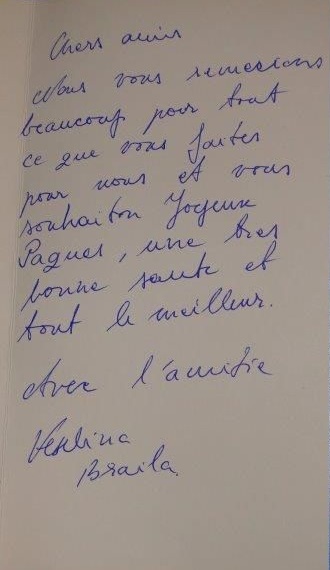 Chers amis
Nous vous remercions
beaucoup pour tout
ce que vous faites
pour nous et vous
souhaiton Joyeux
Paques, une tres
bonne sante et
tout le meilleur.
Avec l'amitie
Veselina
Braila